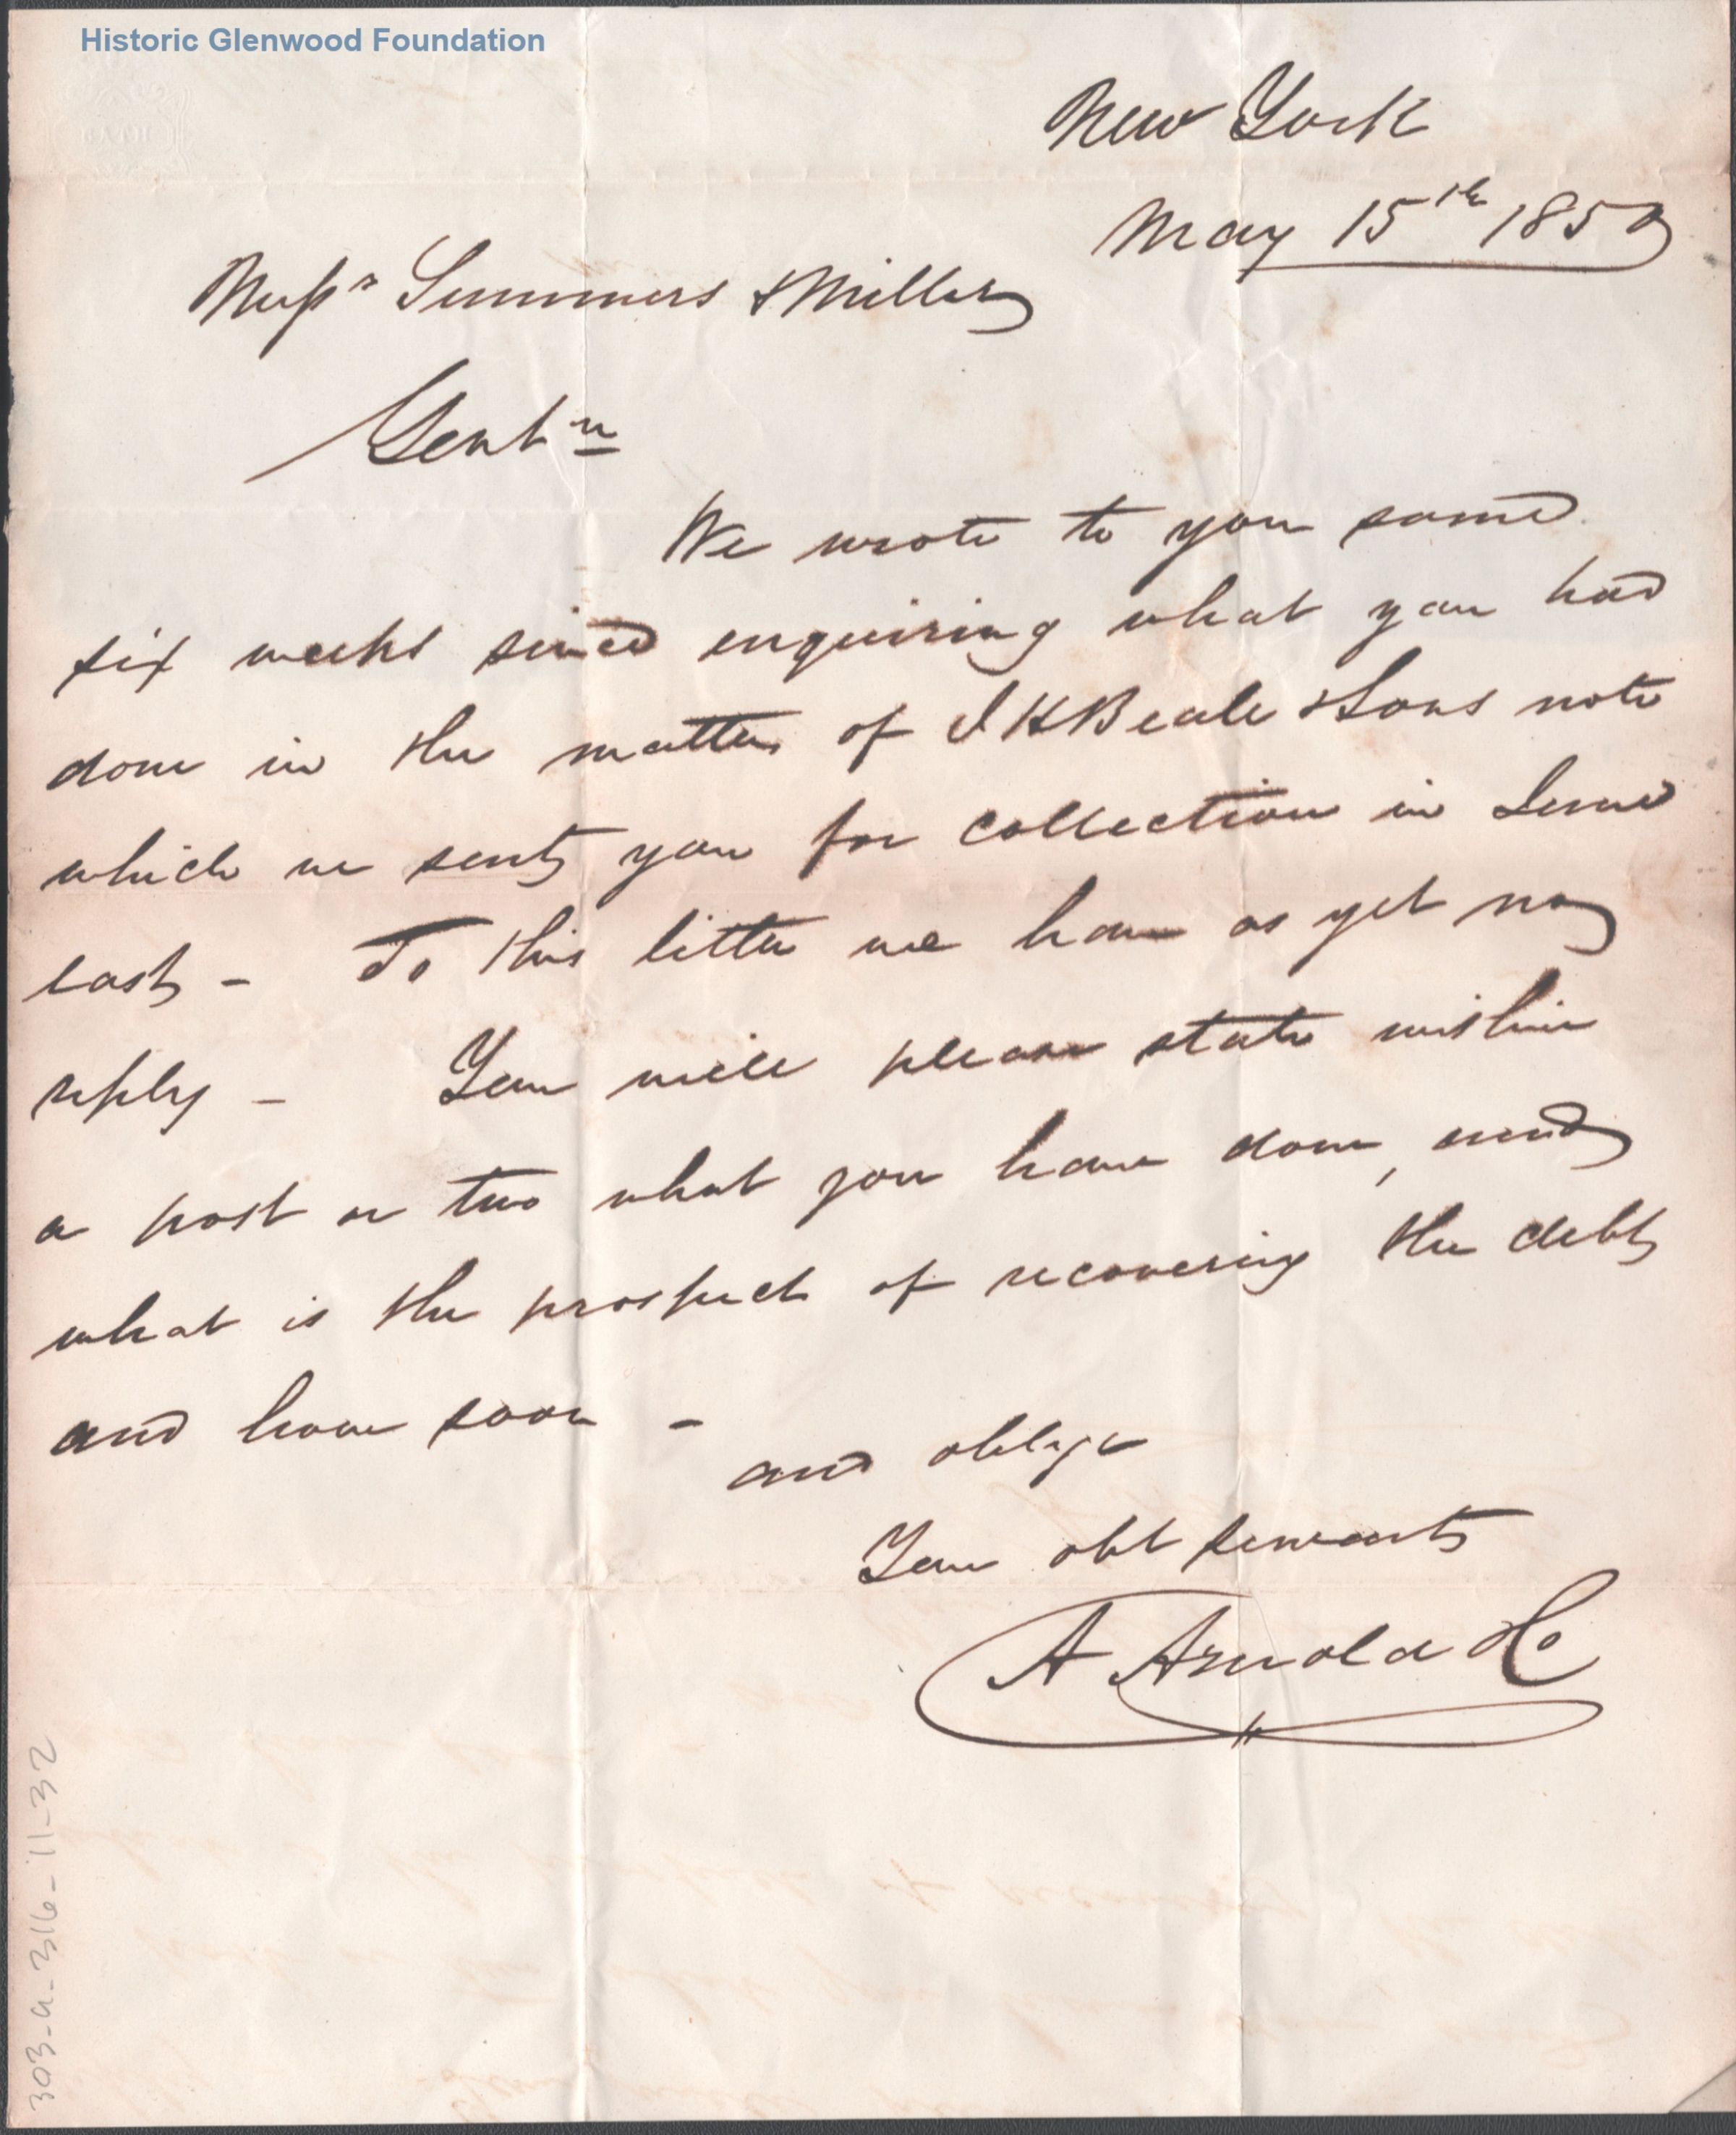 Historic Glenwood Foundation
New York
May 15th 1850
Messrs Summers & Miller
Gentn
We wrote to you some
six weeks since enquiring what you had
done in the matter of J H Beale & Sons note
which we sent you for collection in June
last - To this letter we have as yet no
reply - You will please state within
a post or two what you have done, and
what is the prospect of recovering the debt
and how soon -
and oblige
Your obt servants
A Arnold & Co
303-a-316-11-32